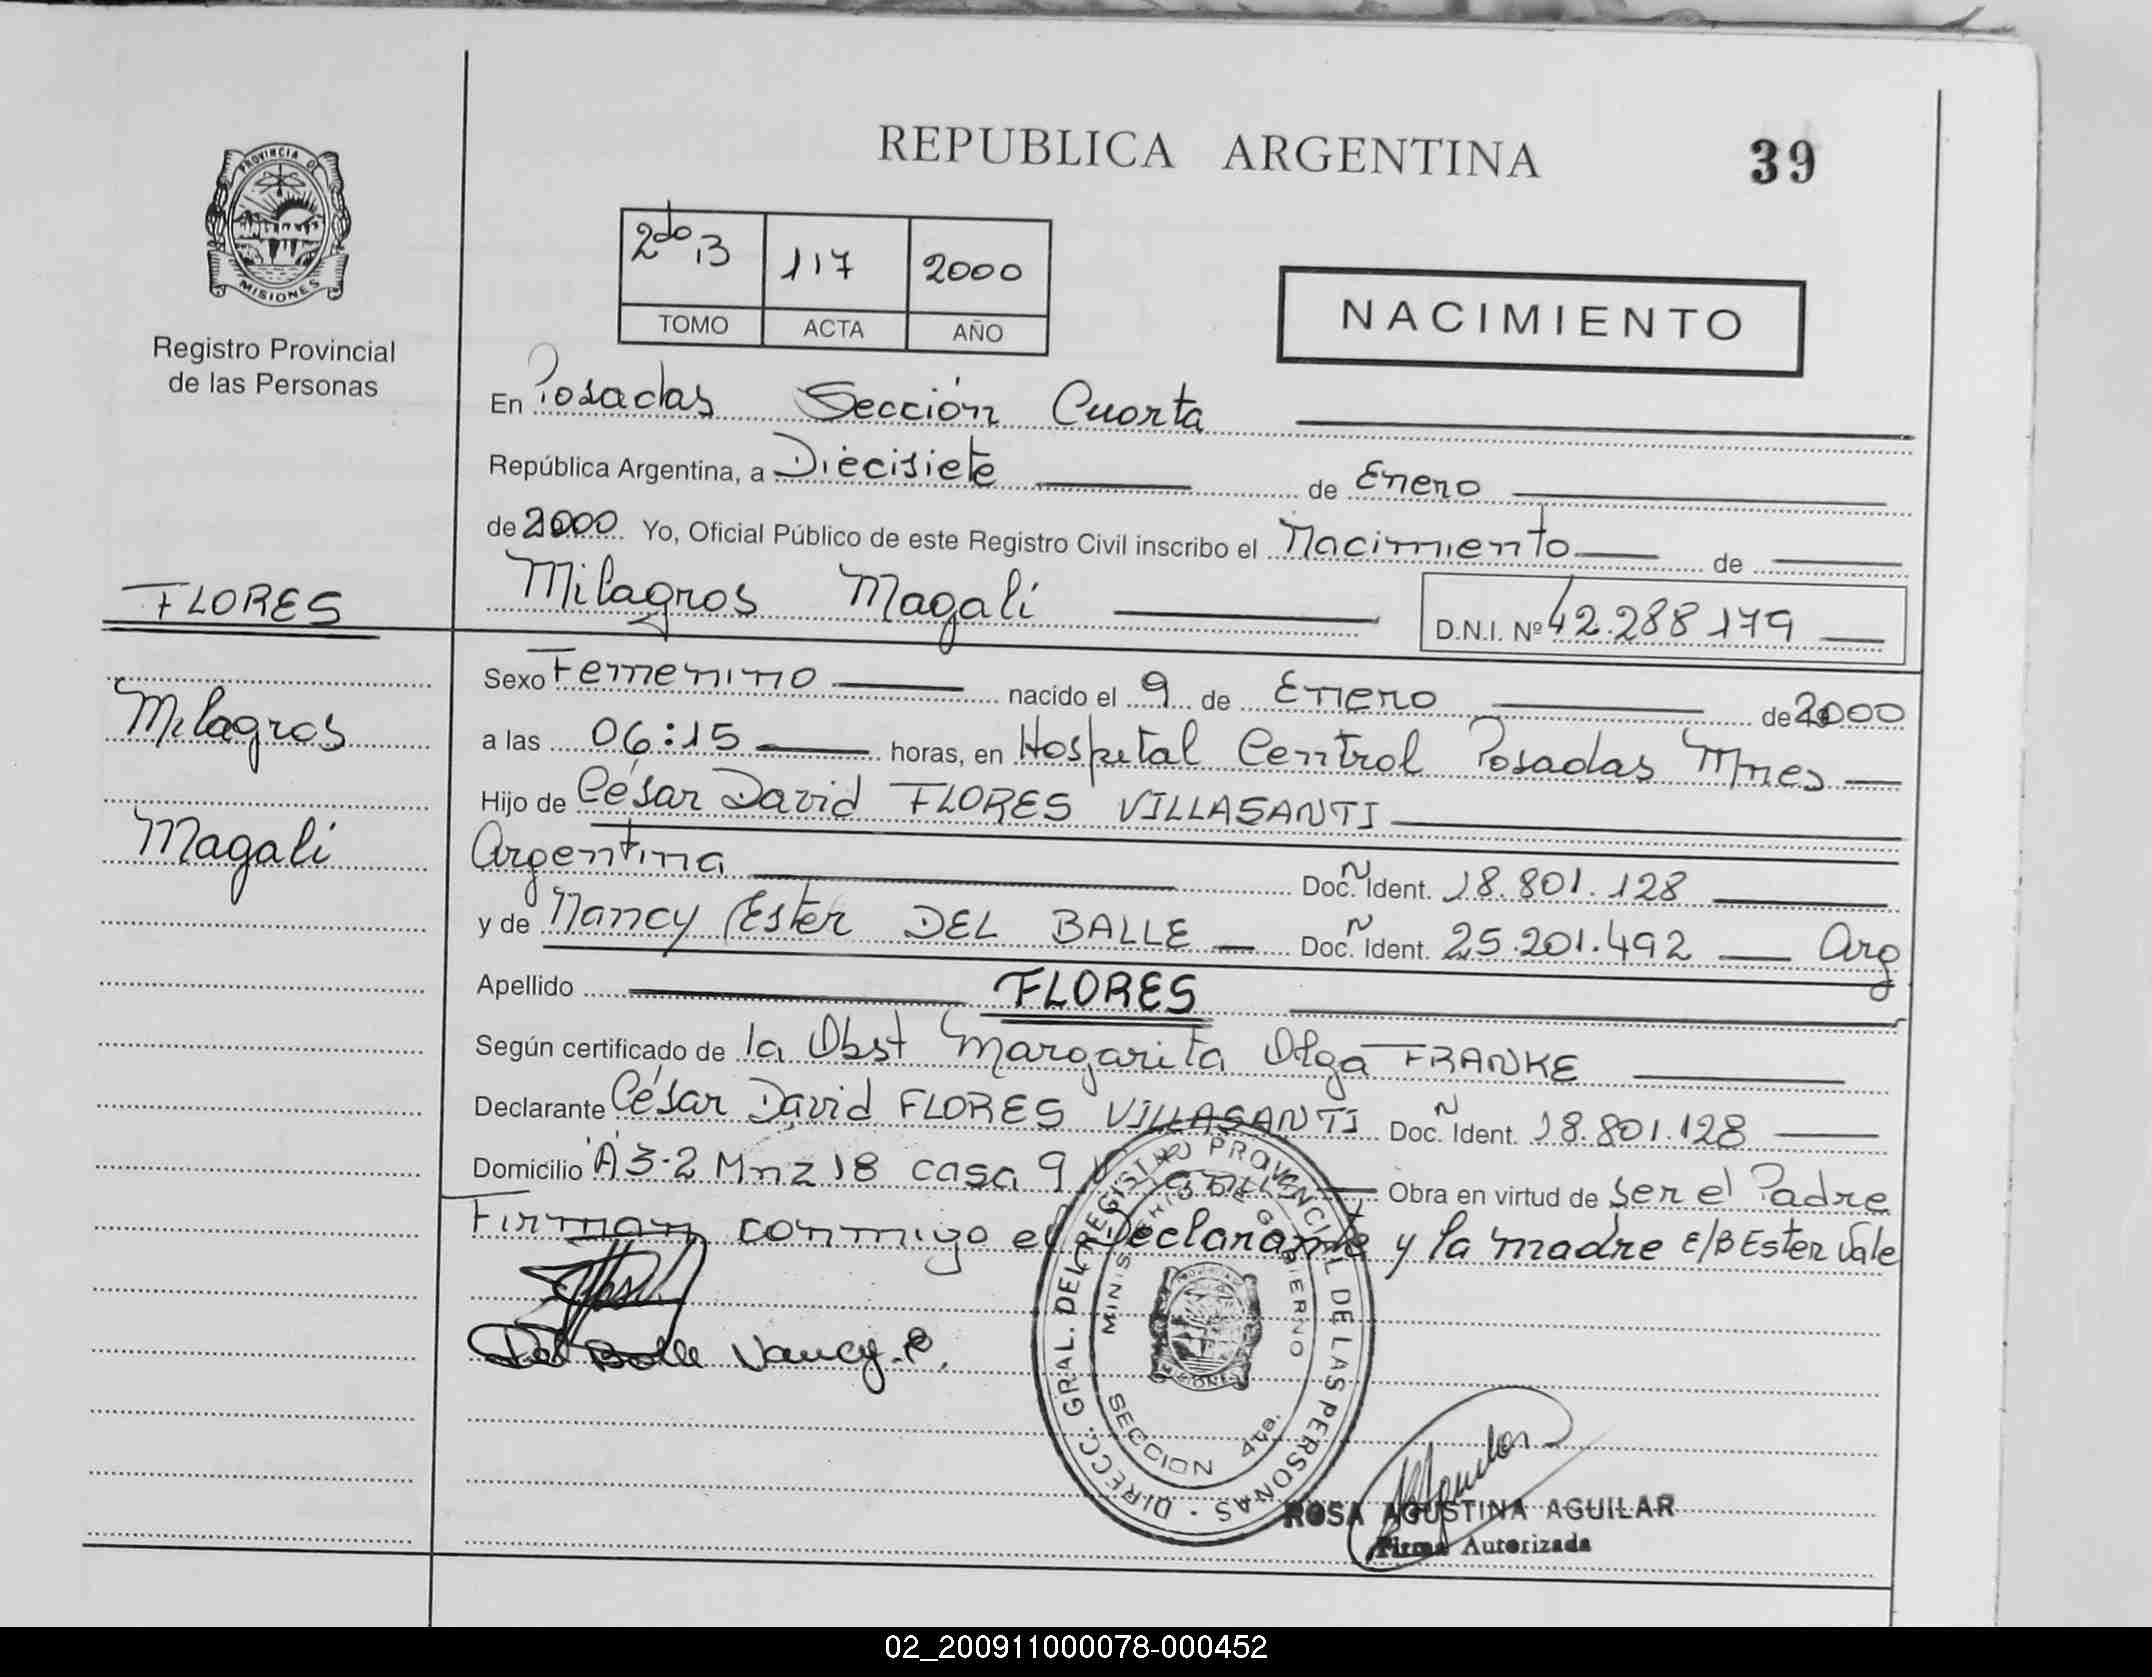 REPUBLICA ARGENTINA
39
PROVINCIA DE
MISIONES
Registro Provincial
de las Personas
2do 13 117 2000
TOMO ACTA AÑO
NACIMIENTO
En Posadas Sección Cuarta
República Argentina, a Diecisiete de Enero
de 2000 Yo, Oficial Público de este Registro Civil inscribo el Nacimiento de
Milagros Magali D.N.I. Nº 42.288.179
FLORES
Milagros
Magali
Sexo Femenino nacido el 9 de Enero de 2000
a las 06:15 horas, en Hospital Central Posadas Mnes
Hijo de César David FLORES VILLASANTI
Argentina Doc. Ident. 18.801.128
y de Nancy Ester DEL BALLE Doc. Ident. 25.201.492 Arg
Apellido FLORES
Según certificado de la Obst Margarita Olga FRANKE
Declarante César David FLORES VILLASANTI Doc. Ident. 18.801.128
Domicilio A 3-2 Mnz 18 casa 9 Obra en virtud de ser el Padre
Firman conmigo el Declarante y la madre E/B Ester Vale
Del Balle Nancy. E.
DIRECC. GRAL. DEL REGISTRO PROVINCIAL DE LAS PERSONAS
MINISTERIO DE GOBIERNO
SECCION 4ta.
ROSA AGUSTINA AGUILAR
Firma Autorizada
02_200911000078-000452